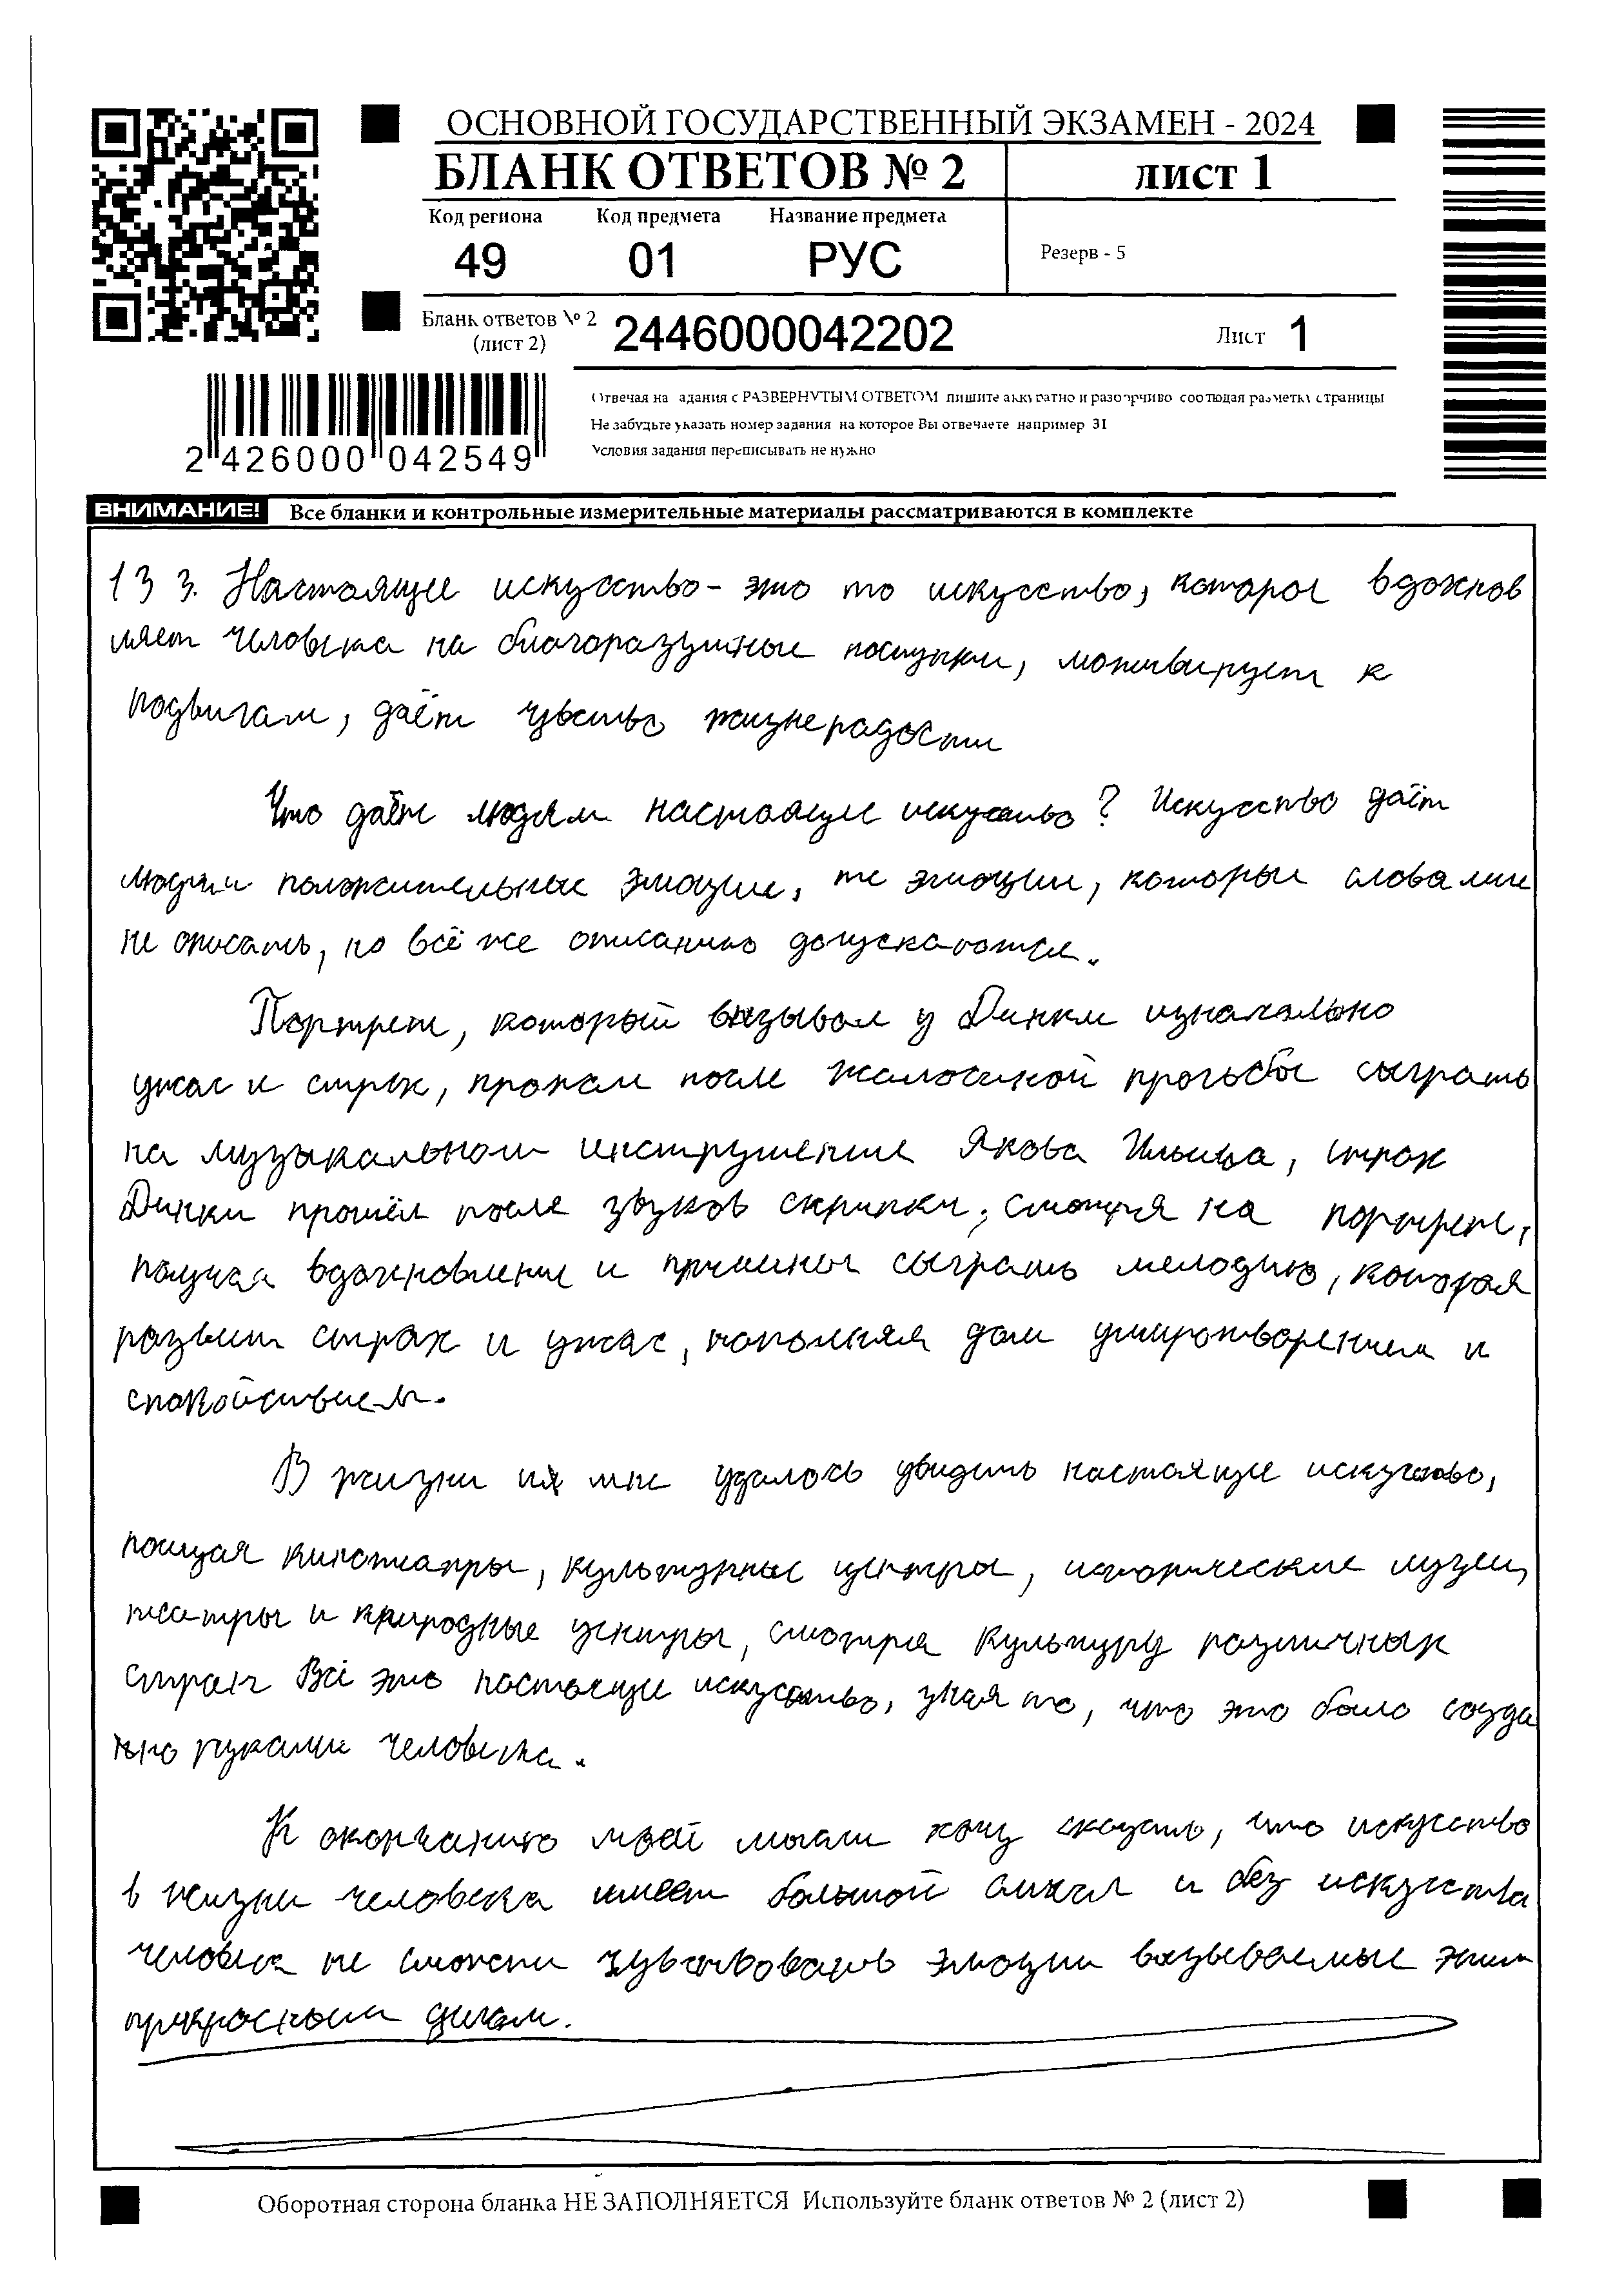 ОСНОВНОЙ ГОСУДАРСТВЕННЫЙ ЭКЗАМЕН - 2024
БЛАНК ОТВЕТОВ № 2
лист 1
Код региона Код предмета Название предмета
49 01 РУС
Резерв - 5
Бланк ответов № 2
(лист 2)
2446000042202
Лист 1
Отвечая на задания с РАЗВЕРНУТЫМ ОТВЕТОМ пишите аккуратно и разборчиво соблюдая разметку страницы
Не забудьте указать номер задания на которое Вы отвечаете например 31
Условия задания переписывать не нужно
2 426000 042549
ВНИМАНИЕ! Все бланки и контрольные измерительные материалы рассматриваются в комплекте
13 3. Настоящее искусство - это то искусство, которое вдохнов
ляет человека на благоразумные поступки, мотивирует к
подвигам, даёт чувство жизнерадости
Что даёт людям настоящее искусство? Искусство даёт
людям положительные эмоции, те эмоции, которые словами
не описать, но всё же описанию допускаются.
Портрет, который вызывал у Динки изначально
ужас и страх, пропал после жалостной просьбы сыграть
на музыкальном инструменте Якова Ильича, страх
Динки прошёл после звуков скрипки, смотря на портрет,
получая вдохновение и сыграть мелодию, которая
развеит страх и ужас, наполняя дом умиротворением и
спокойствием.
В жизни мне удалось увидеть настоящее искусство,
посещая кинотеатры, культурные центры, исторические музеи,
театры и природные центры, смотря культуру различных
стран Всё это настоящее искусство, зная то, что это было созда
но руками человека.
К окончанию моей мысли хочу сказать, что искусство
в жизни человека имеет большой смысл и без искусства
человек не сможет чувствовать эмоции вызываемые этим
прекрасным делом.
Оборотная сторона бланка НЕ ЗАПОЛНЯЕТСЯ Используйте бланк ответов № 2 (лист 2)